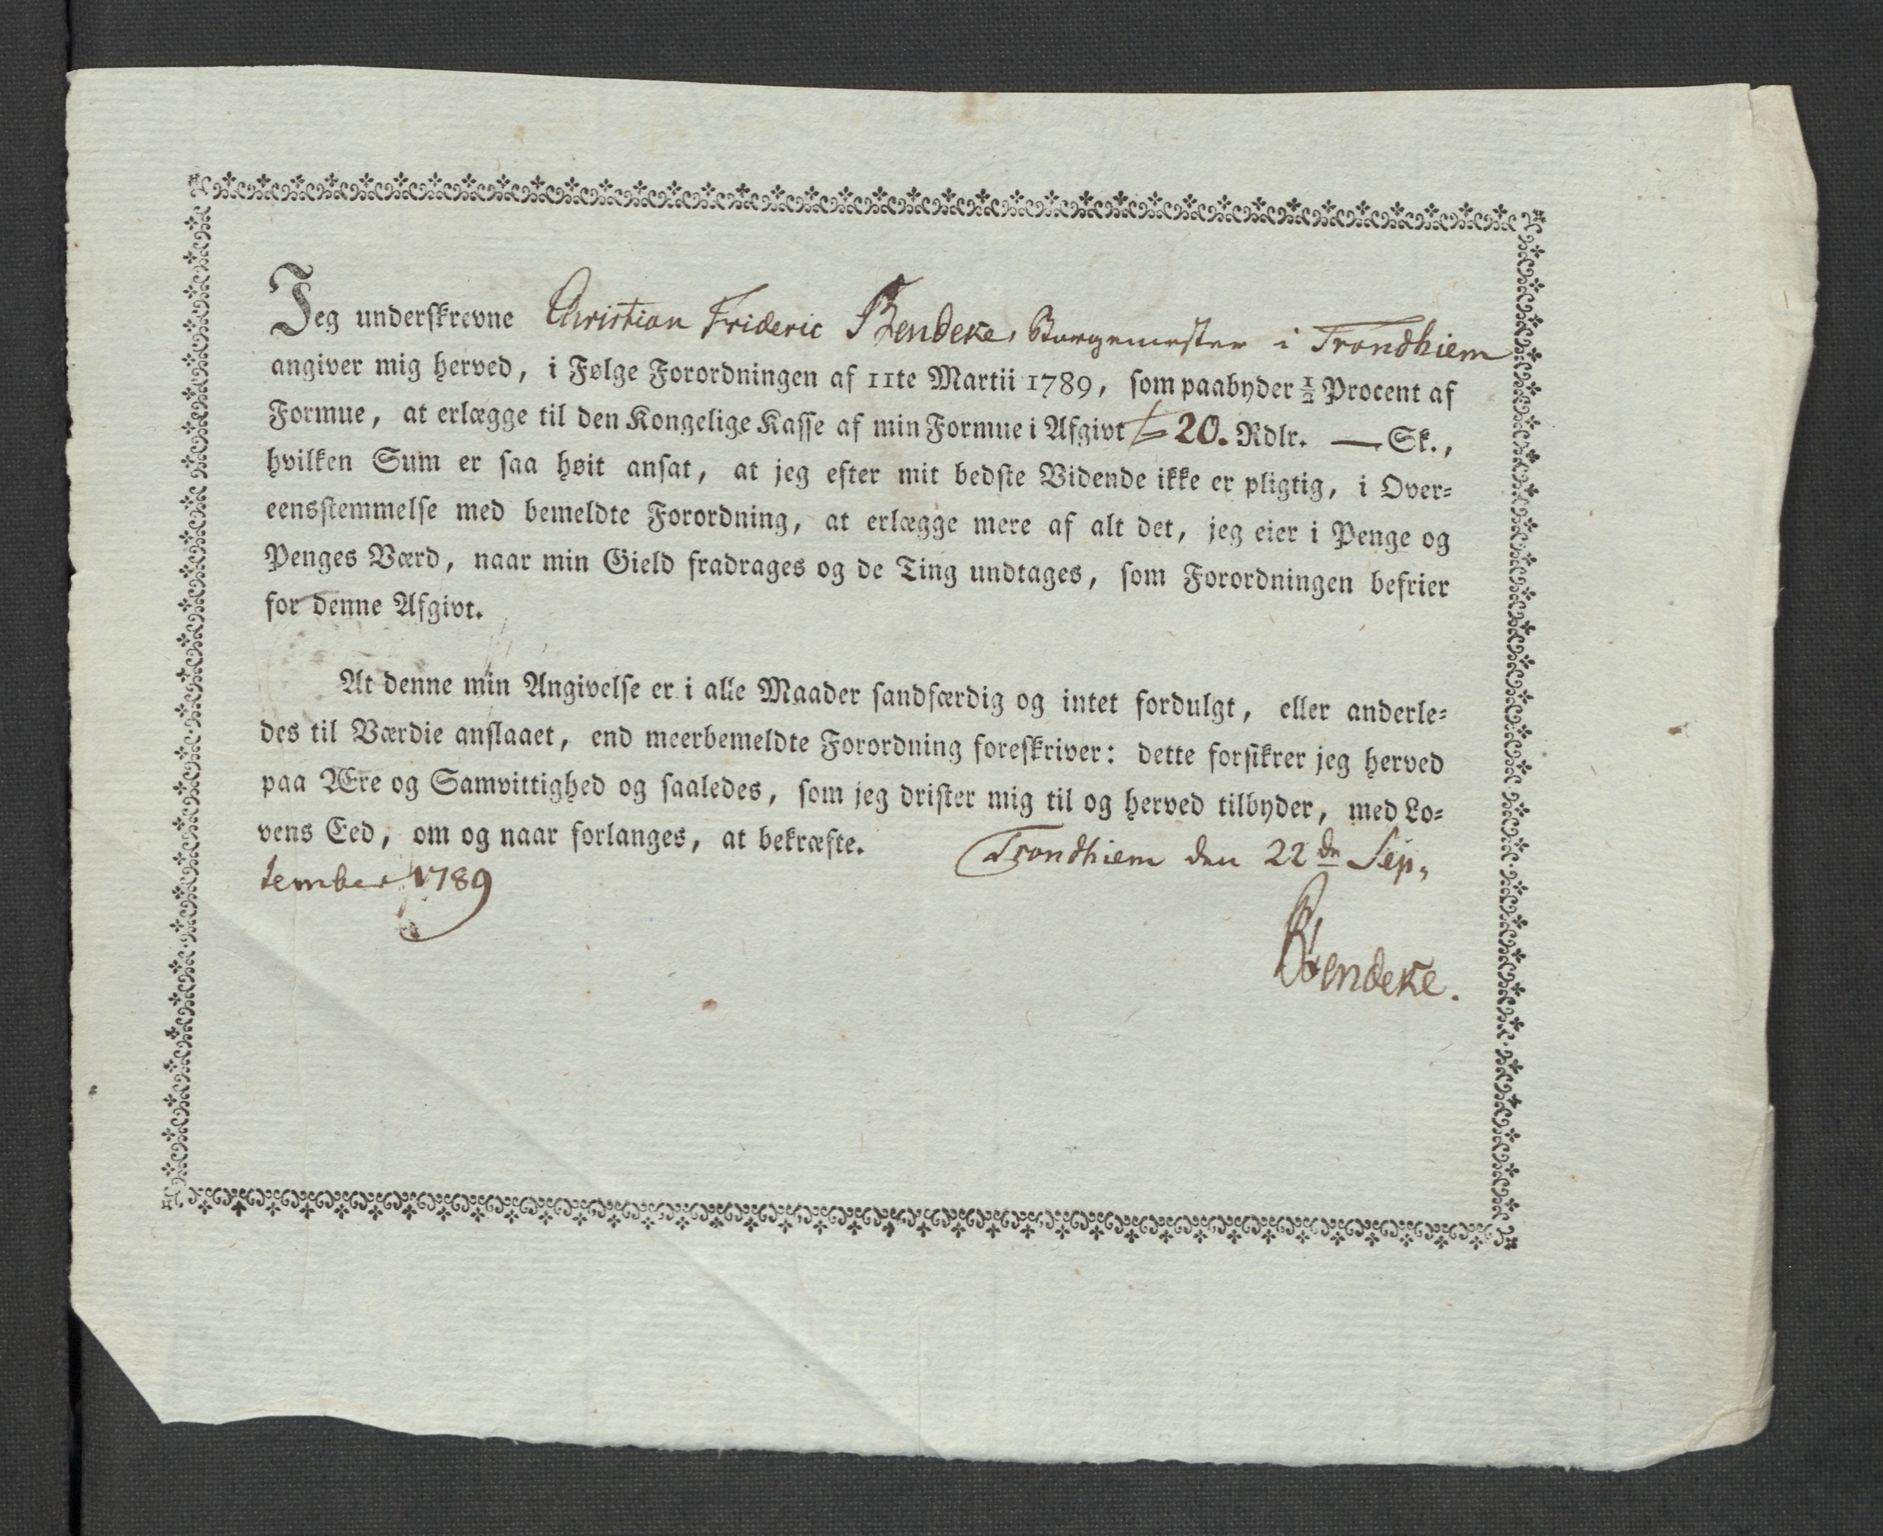 Jeg underskrevne Christian Frideric Bendeke, Borgemester i Trondhiem
angiver mig herved, i Følge Forordningen af 11te Martii 1789, som paabyder ½ Procent af
Formue, at erlægge til den Kongelige Kasse af min Formue i Afgivt 20. Rdlr. — Sk.,
hvilken Sum er saa høit ansat, at jeg efter mit bedste Vidende ikke er pligtig, i Over-
eensstemmelse med bemeldte Forordning, at erlægge mere af alt det, jeg eier i Penge og
Penges Værd, naar min Gield fradrages og de Ting undtages, som Forordningen befrier
for denne Afgivt.
At denne min Angivelse er i alle Maader sandfærdig og intet fordulgt, eller anderle-
des til Værdie anslaaet, end meerbemeldte Forordning foreskriver: dette forsikrer jeg herved
paa Ære og Samvittighed og saaledes, som jeg drister mig til og herved tilbyder, med Lo-
vens Eed, om og naar forlanges, at bekræfte. Trondhiem den 22de Sep-
tember 1789
Bendeke.